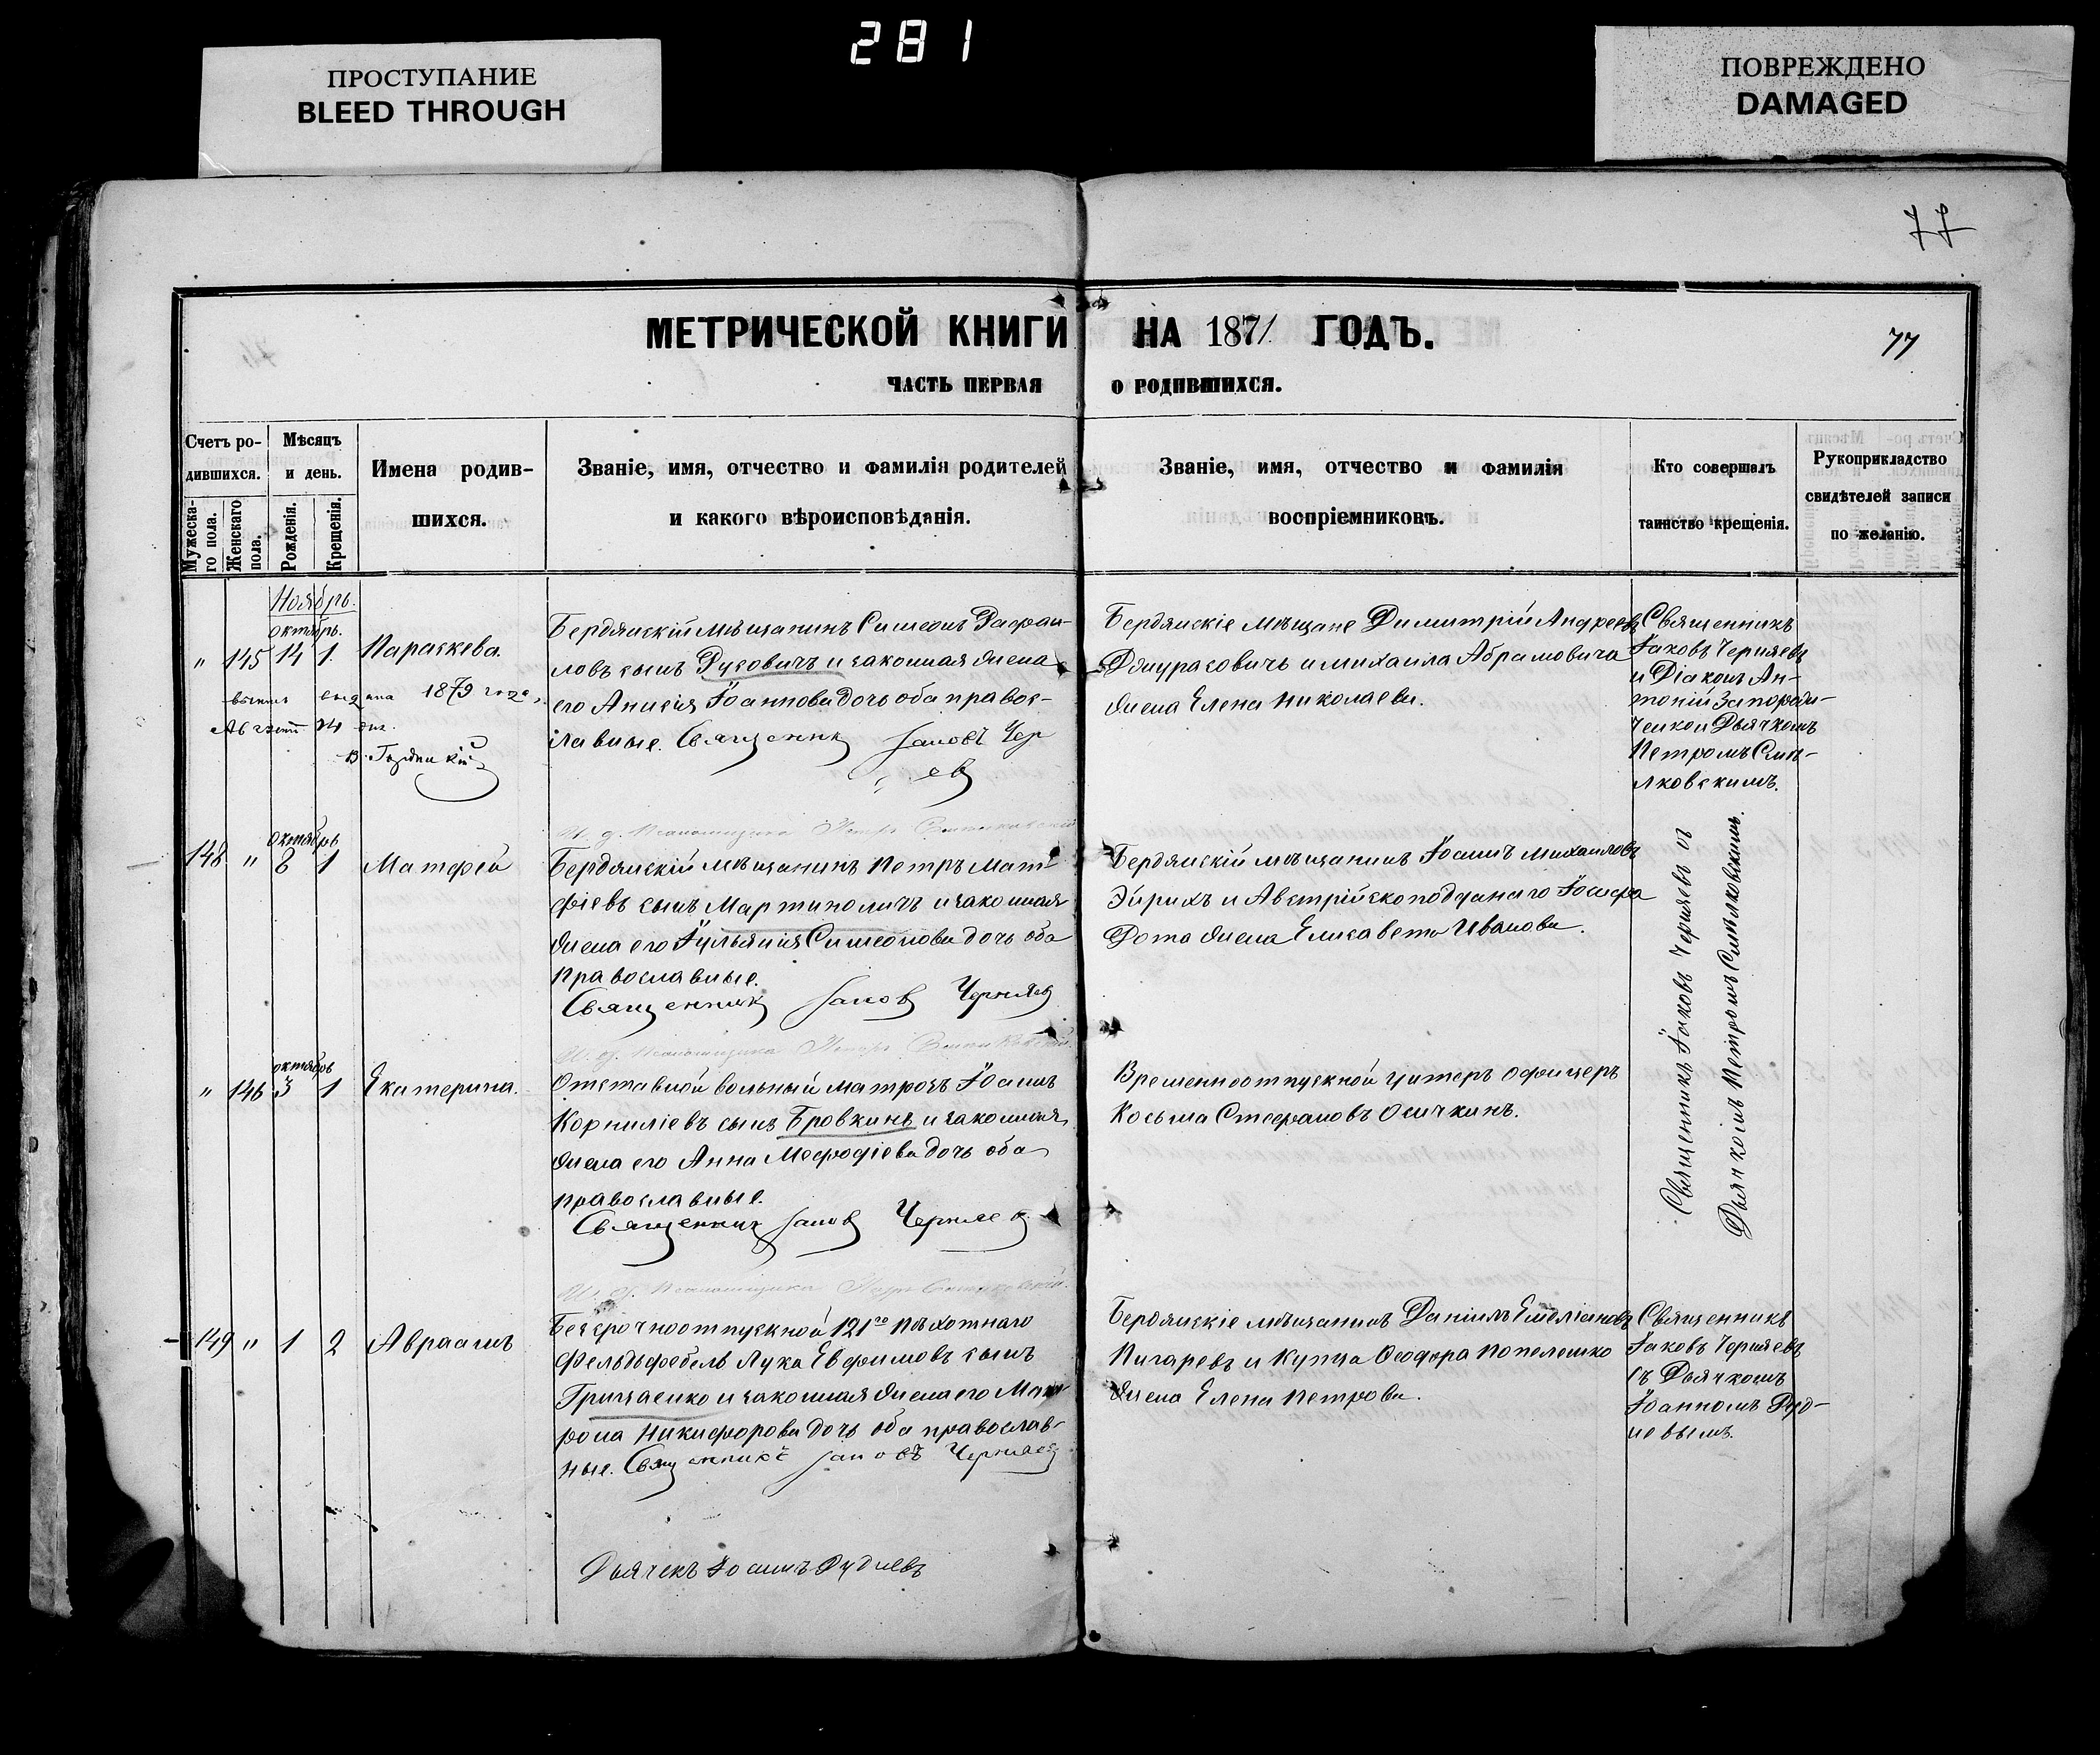 281
ПРОСТУПАНИЕ
BLEED THROUGH
ПОВРЕЖДЕНО
DAMAGED
77
МЕТРИЧЕСКОЙ КНИГИ НА 1871 ГОДЪ.
77
ЧАСТЬ ПЕРВАЯ О РОДИВШИХСЯ.
Счетъ ро-
дившихся.
Мужеска-
го пола.
Женскаго
пола.
Мѣсяцъ
и день.
Рожденія.
Крещенія.
Имена родив-
шихся.
Званіе, имя, отчество и фамилія родителей
и какого вѣроисповѣданія.
Званіе, имя, отчество и фамилія
воспріемниковъ.
Кто совершалъ
таинство крещенія.
Рукоприкладство
свидѣтелей записи
по желанію.
Ноябрь.
октябрь.
" 145 14 1. Параскева.
1879 года
Августа 14 дня.
Бердянскій мѣщанинъ Симеонъ Рафаи-
ловъ сынъ Дусовичъ и законная жена
его Анисія Іоаннова дочь оба правос-
лавные. Священникъ Іаковъ Чер
евъ
Бердянскіе мѣщане Димитрій Андреевъ
Джурасовичъ и михаила Абрамовича
жена Елена Николаева.
Священникъ
Іаковъ Черняевъ
и Діаконъ Ан-
тоній Запорож-
ченко и Дьячкомъ
Петромъ Синь-
яковскимъ.
И. д. Псаломщика Петръ Синьковскій
октябрь
148 " 8 1 Матфей
Бердянскій мѣщанинъ Петръ Мат-
фіевъ сынъ Мартиноличъ и законная
жена его Іуліянія Симеонова дочь оба
православные.
Священникъ Іаковъ Черняевъ
Бердянскій мѣщанинъ Іоаннъ Михаиловъ
Эйрихъ и Австрійскоподданаго Іосифа
Рота жена Елисавета Иванова.
Священникъ Іаковъ Черняевъ съ
Дьячкомъ Петромъ Синьяковскимъ.
И. д. Псаломщика Петръ
октябрь
" 146 3 1 Екатерина.
Отставной вольный матросъ Іоаннъ
Корниліевъ сынъ Бровкинъ и законная
жена его Анна Мефодіева дочь оба
православные.
Священникъ Іаковъ Черняев
Временноотпускной унтеръ офицеръ
Косьма Стефановъ Осичкинъ.
И. д. Псаломщика Петръ
149 " 1 2 Авраамъ
Безсрочноотпускной 121го пѣхотнаго
Фельдьфебель Лука Евфимовъ сынъ
Грицаенко и законная жена его Мат-
рона Никифорова дочь оба православ-
ные. Священникъ Іаковъ Черняевъ
Дьячекъ Іоаннъ Рудневъ
Бердянскіе мѣщанинъ Даніилъ Емеліановъ
Пичаревъ и Купца Ѳеодора Попелешко
жена Елена Петрова.
Священникъ
Іаковъ Черняевъ
съ Дьячкомъ
Іоанномъ Руд-
невымъ.